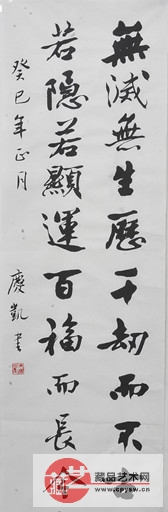 無滅無生歷千劫而不古
若隐若顯運百福而長今
癸巳年正月
慶凱書
藏品艺术网
www.cpysw.cn